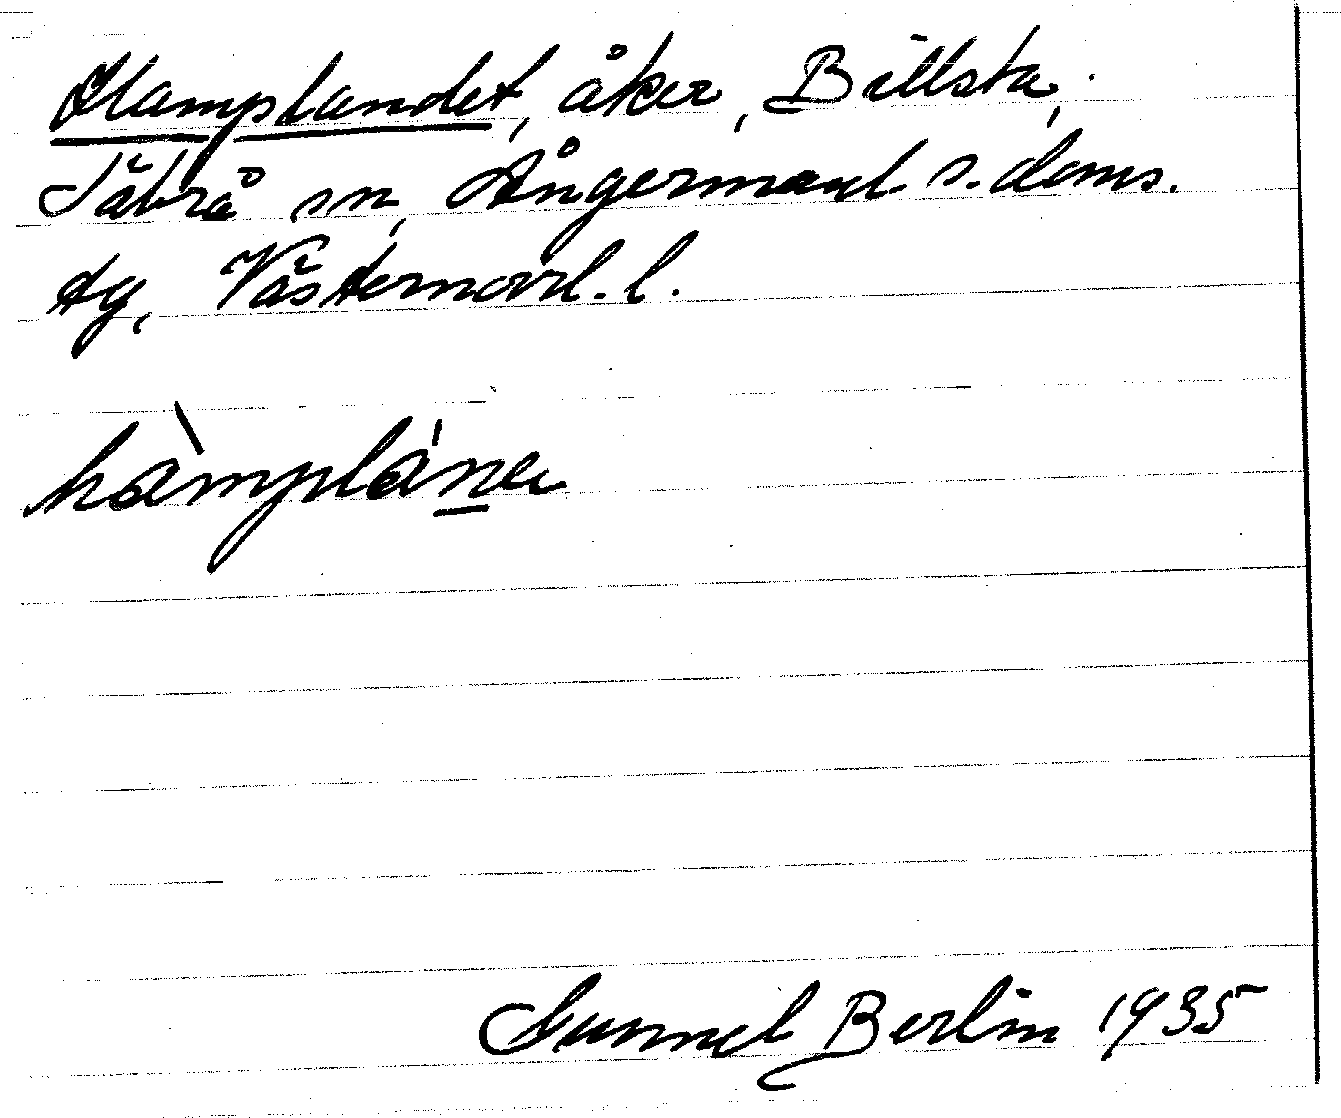 Hamplandet, åker, Billsta,
Säbrå sn, Ångermanl. s. doms.
tg, Västernorrl. l.
hàmpláne
Gunnel Berlin 1935